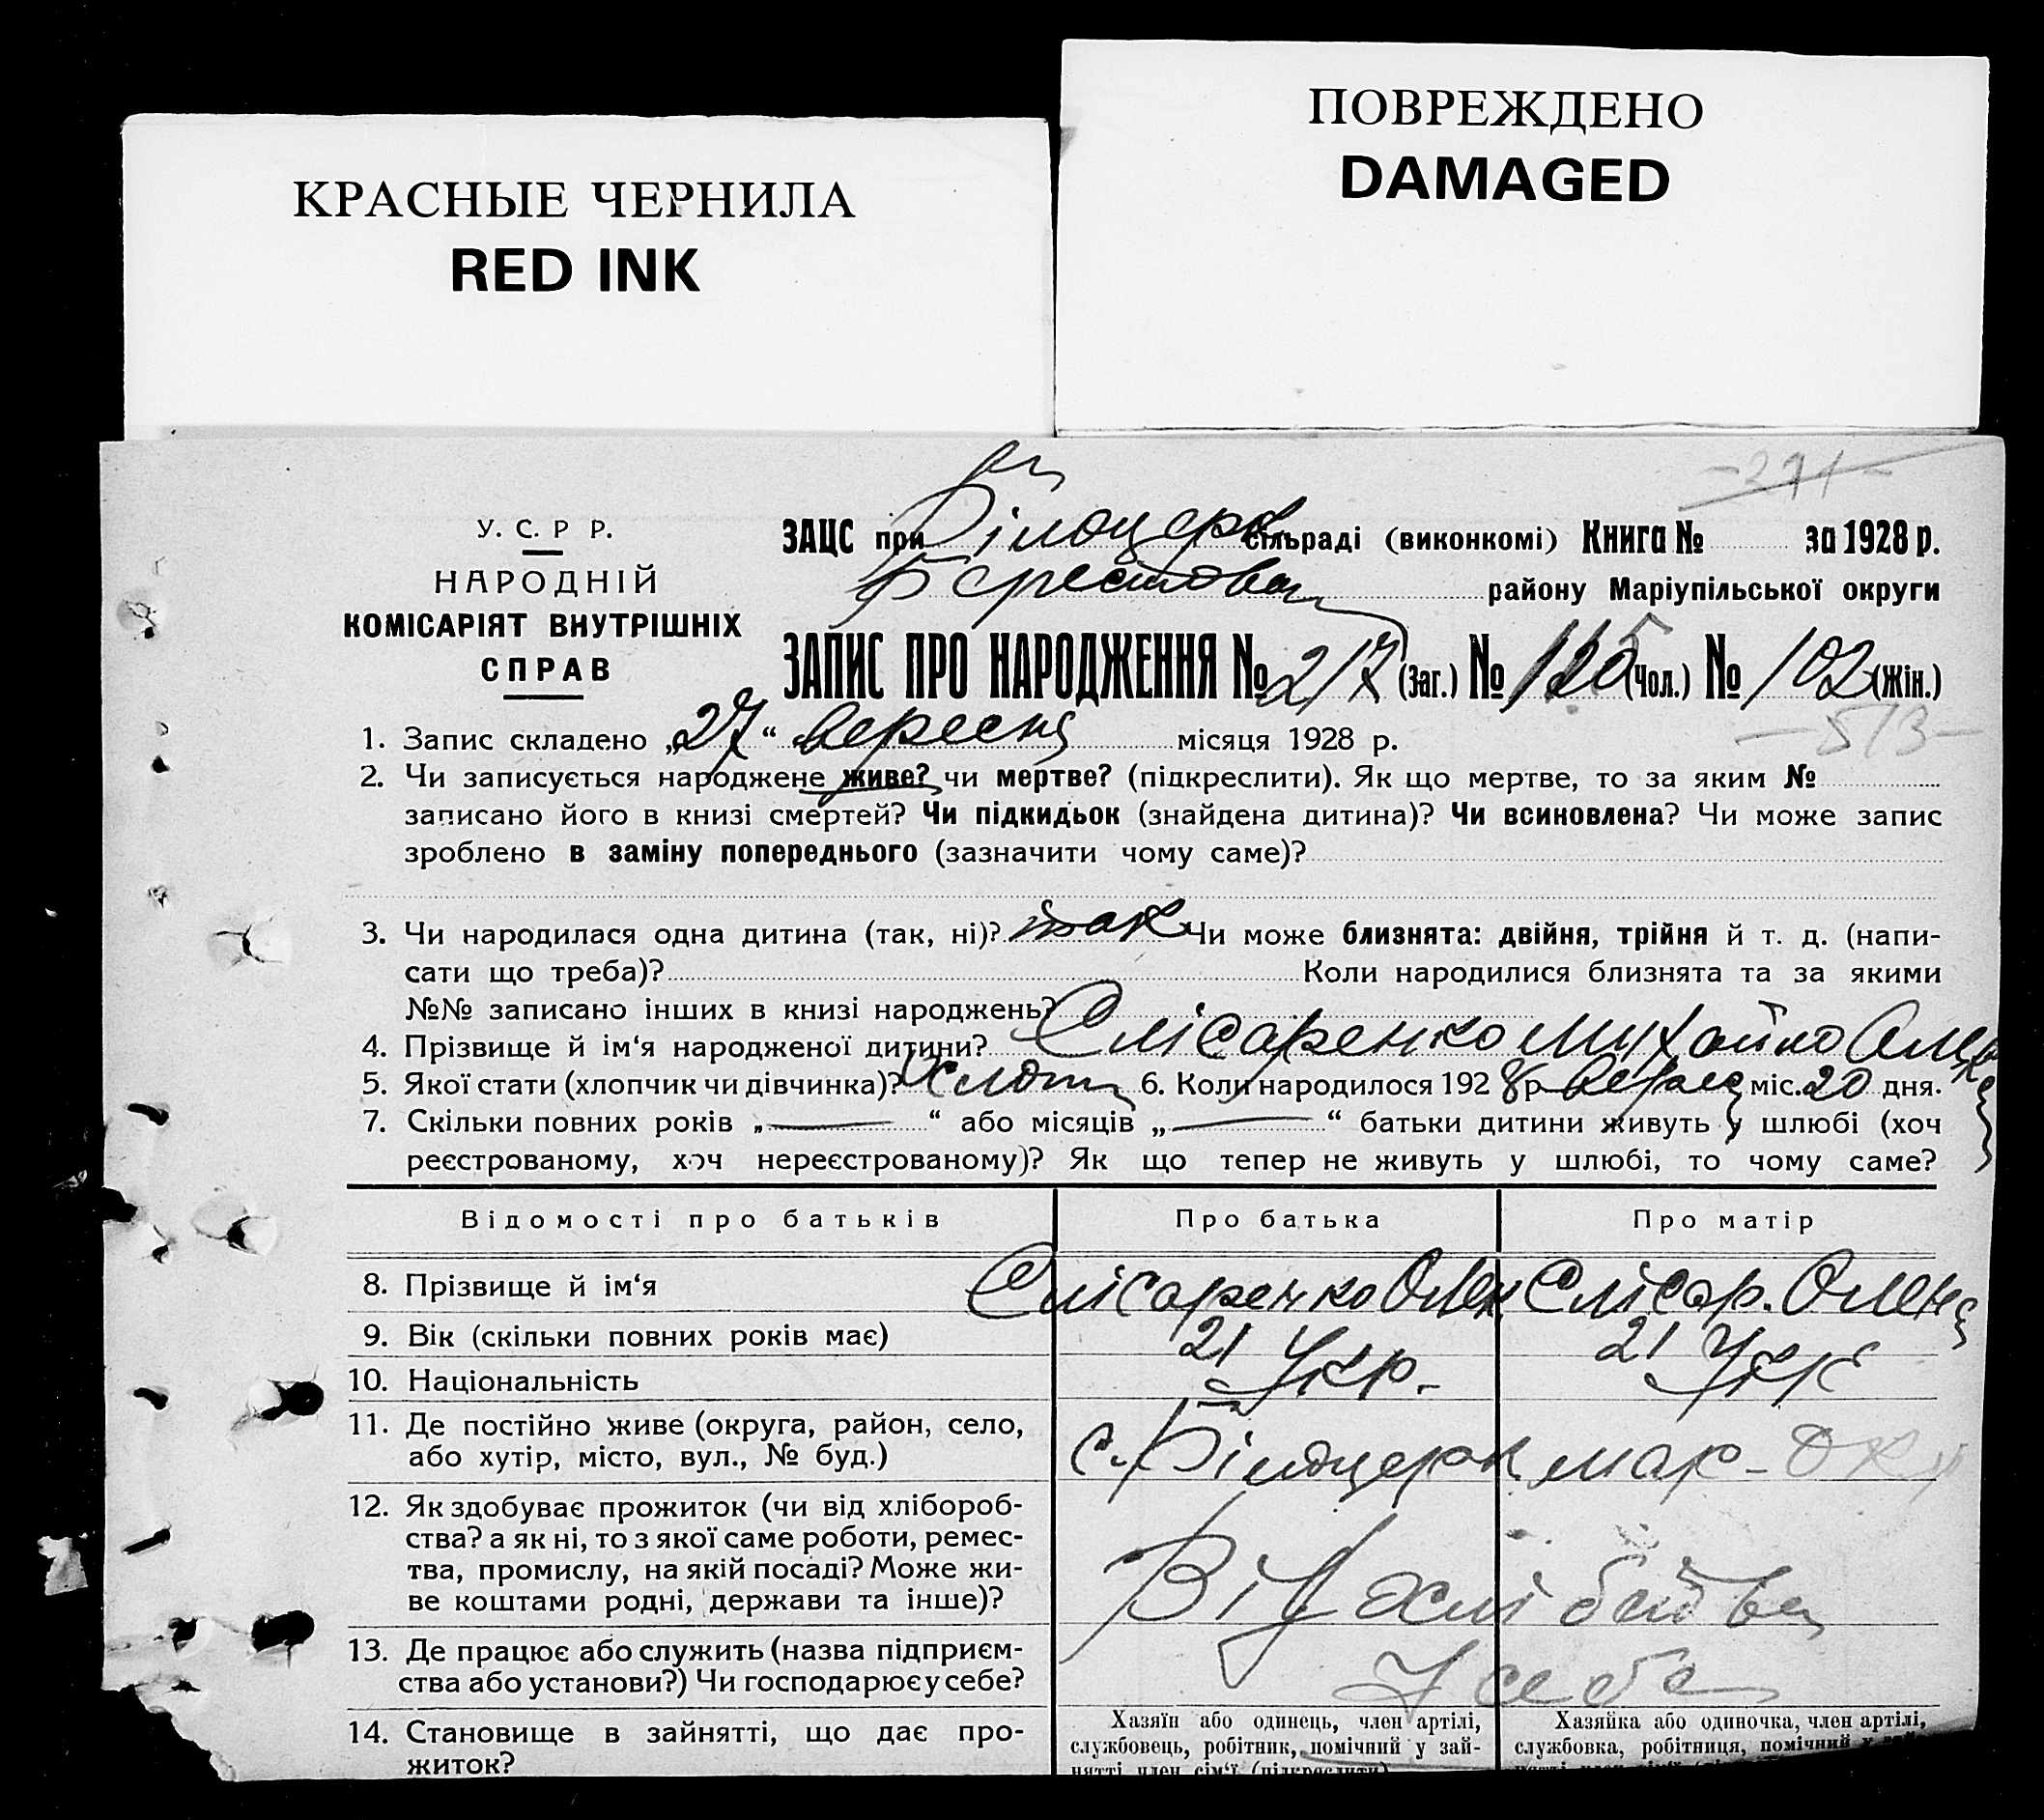 ПОВРЕЖДЕНО
DAMAGED
КРАСНЫЕ ЧЕРНИЛА
RED INK
-291-
У. С. Р Р.
НАРОДНІЙ
КОМІСАРІЯТ ВНУТРІШНІХ
СПРАВ
ЗАЦС при Білоцерк сільраді (виконкомі) Книга № за 1928 р.
Берестовец району Маріупільської округи
ЗАПИС ПРО НАРОДЖЕННЯ № 217 (заг.) № 115 (чол.) № 102 (жін.)
-513-
1. Запис складено „27“ вересня місяця 1928 р.
2. Чи записується народжене живе? чи мертве? (підкреслити). Як що мертве, то за яким №
записано його в книзі смертей? Чи підкидьок (знайдена дитина)? Чи всиновлена? Чи може запис
зроблено в заміну попереднього (зазначити чому саме)?
3. Чи народилася одна дитина (так, ні)? так Чи може близнята: двійня, трійня й т. д. (напи-
сати що треба)? Коли народилися близнята та за якими
№№ записано інших в книзі народжень?
4. Прізвище й ім'я народженої дитини? Єлісаренко Михайло
5. Якої стати (хлопчик чи дівчинка)? Хлопч 6. Коли народилося 1928 р. верес міс. 20 дня.
7. Скільки повних років „—“ або місяців „—“ батьки дитини живуть у шлюбі (хоч
реєстрованому, хоч нереєстрованому)? Як що тепер не живуть у шлюбі, то чому саме?
Відомості про батьків Про батька Про матір
8. Прізвище й ім‘я Єлісаренко Олек Єлісар. Олена
9. Вік (скільки повних років має) 21 21
10. Національність Укр. Укр
11. Де постійно живе (округа, район, село,
або хутір, місто, вул., № буд.) с. Білоцерк мар- окр
12. Як здобуває прожиток (чи від хлібороб-
ства? а як ні, то з якої саме роботи, ремес-
тва, промислу, на якій посаді? Може жи-
ве коштами родні, держави та інше)? Від
13. Де працює або служить (назва підприєм-
ства або установи?) Чи господарює у себе? У себе
14. Становище в зайнятті, що дає про-
житок?
Хазяїн або одинець, член артілі,
службовець, робітник, помічний у зай-
нятті член сім‘ї (підкреслити)
Хазяйка або одиночка, член артілі,
службовка, робітниця, помічний у